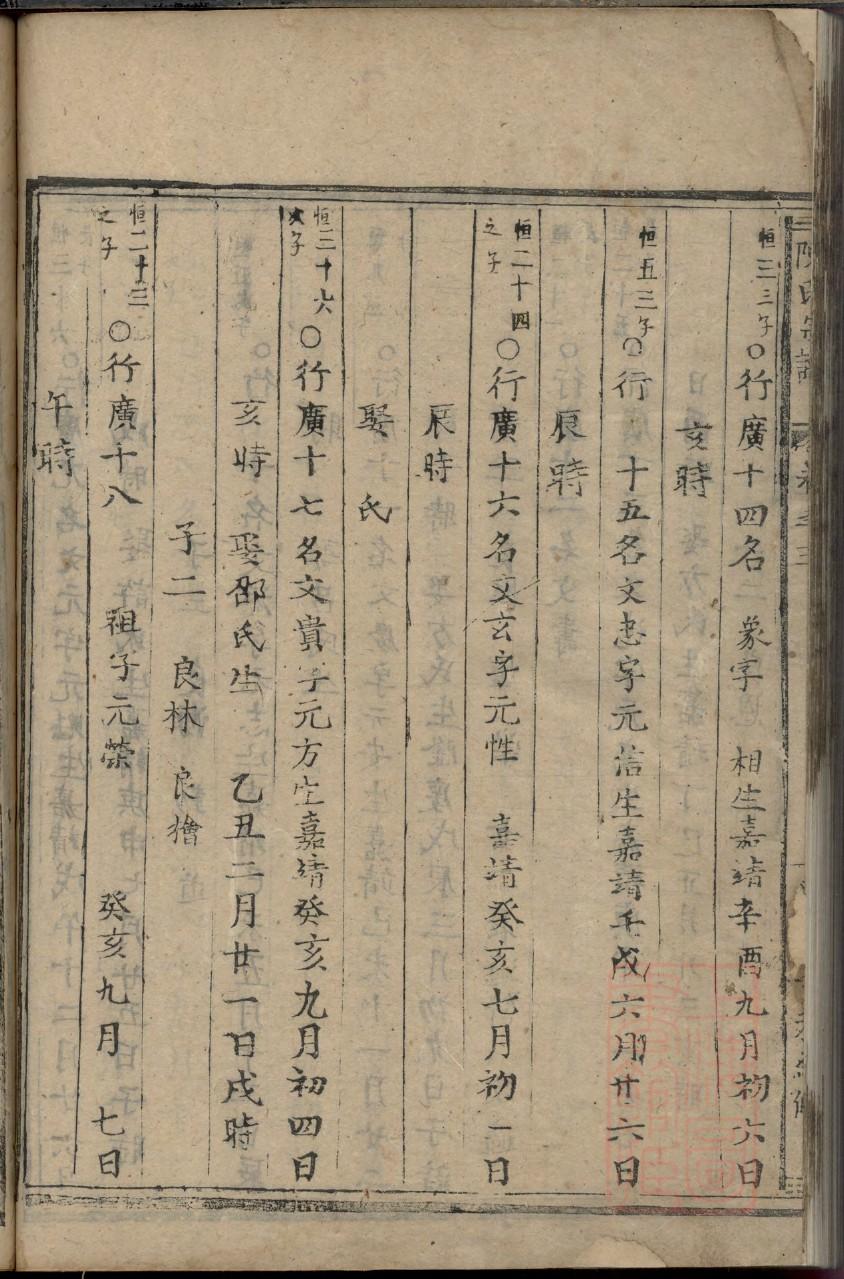 恒三三子○行廣十四名 象字 相生嘉靖辛酉九月初六日
亥時
恒五三子○行 十五名文忠字元信生嘉靖壬戌六月廿六日
辰時
恒二十四之子○行廣十六名文玄字元性 嘉靖癸亥七月初一日
辰時
娶 氏
恒三十六次子○行廣十七名文貴字元方生嘉靖癸亥九月初四日
亥時 娶邵氏生 乙丑二月廿一日戌時
子二 良林 良獪
恒二十三之子○行廣十八 祖字元榮 癸亥九月 七日
午時